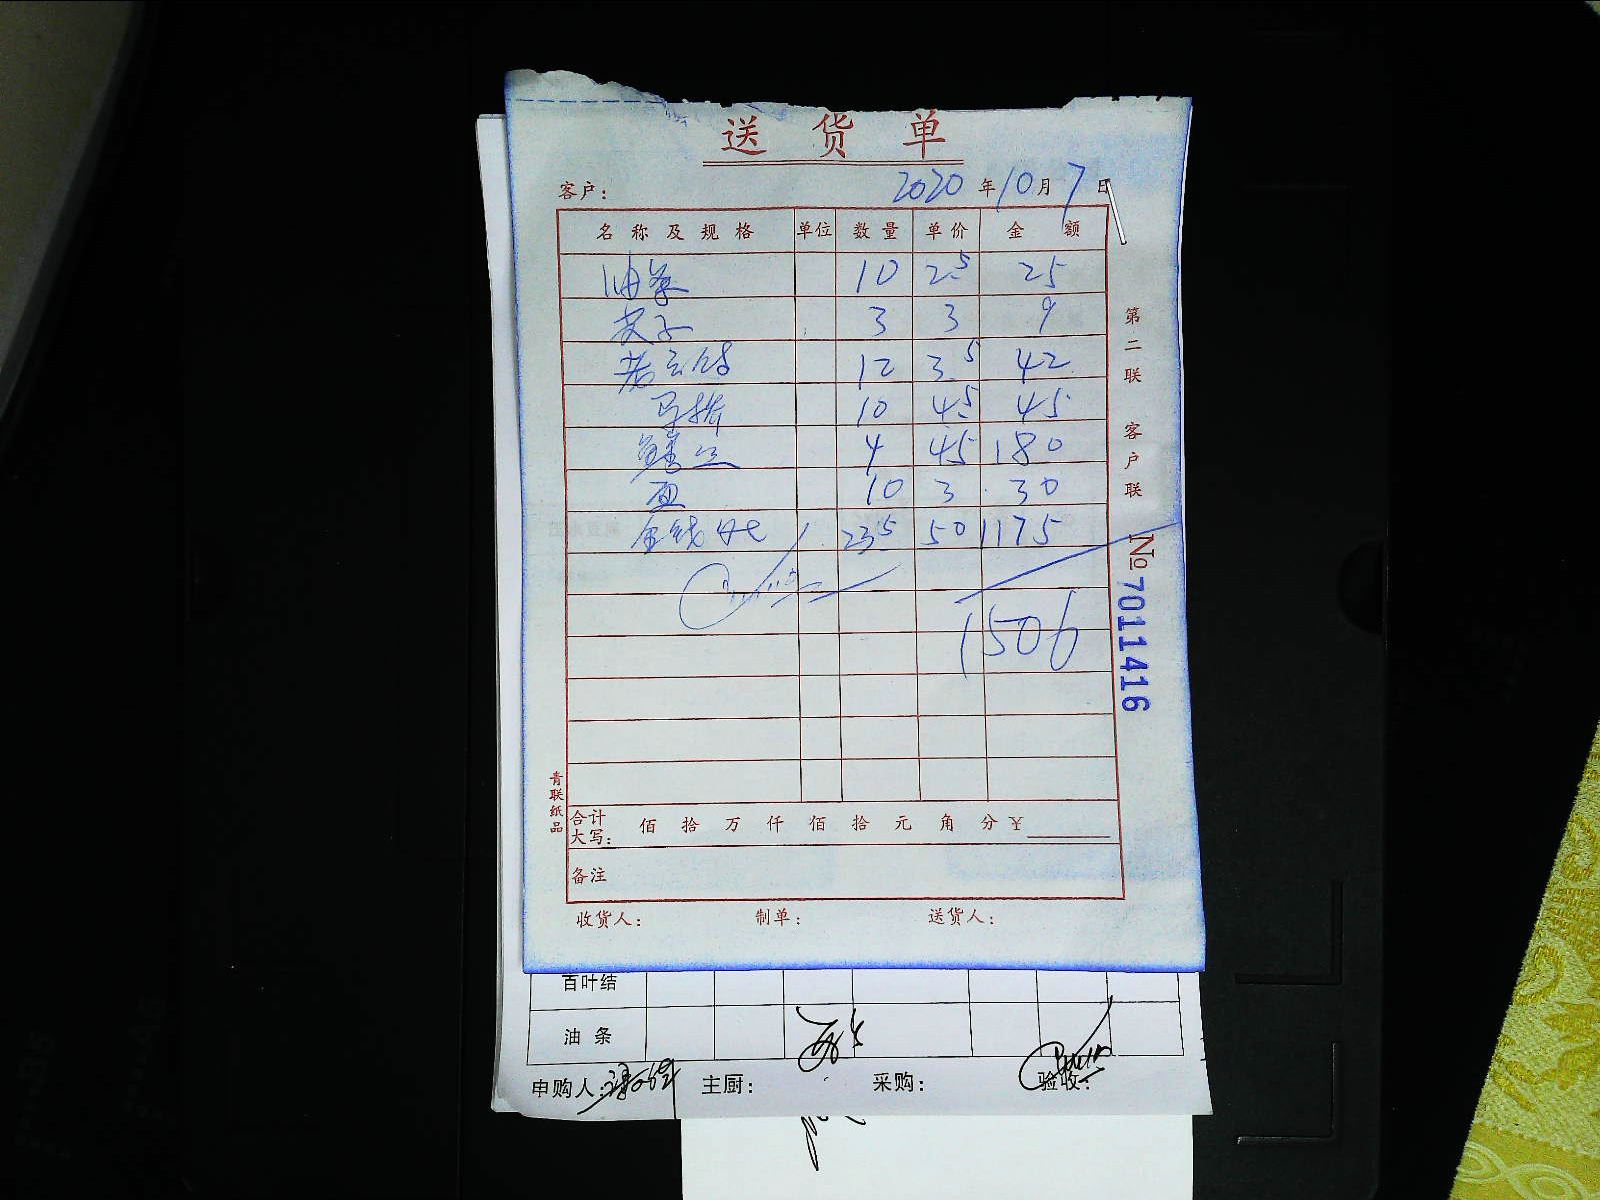 送货单
客户： 2020年10月7日
名称及规格 单位 数量 单价 金额
油条 10 2.5 25
3 3 9
12 3.5 42
10 4.5 45
鳝丝 4 45 180
面 10 3 30
金钱 23.5 50 1175
1506
合计大写： 佰 拾 万 仟 佰 拾 元 角 分 ¥
备注
收货人： 制单： 送货人：
第二联 客户联
№ 7011416
青联纸品
百叶结
油条
申购人： 主厨： 采购： 验收：